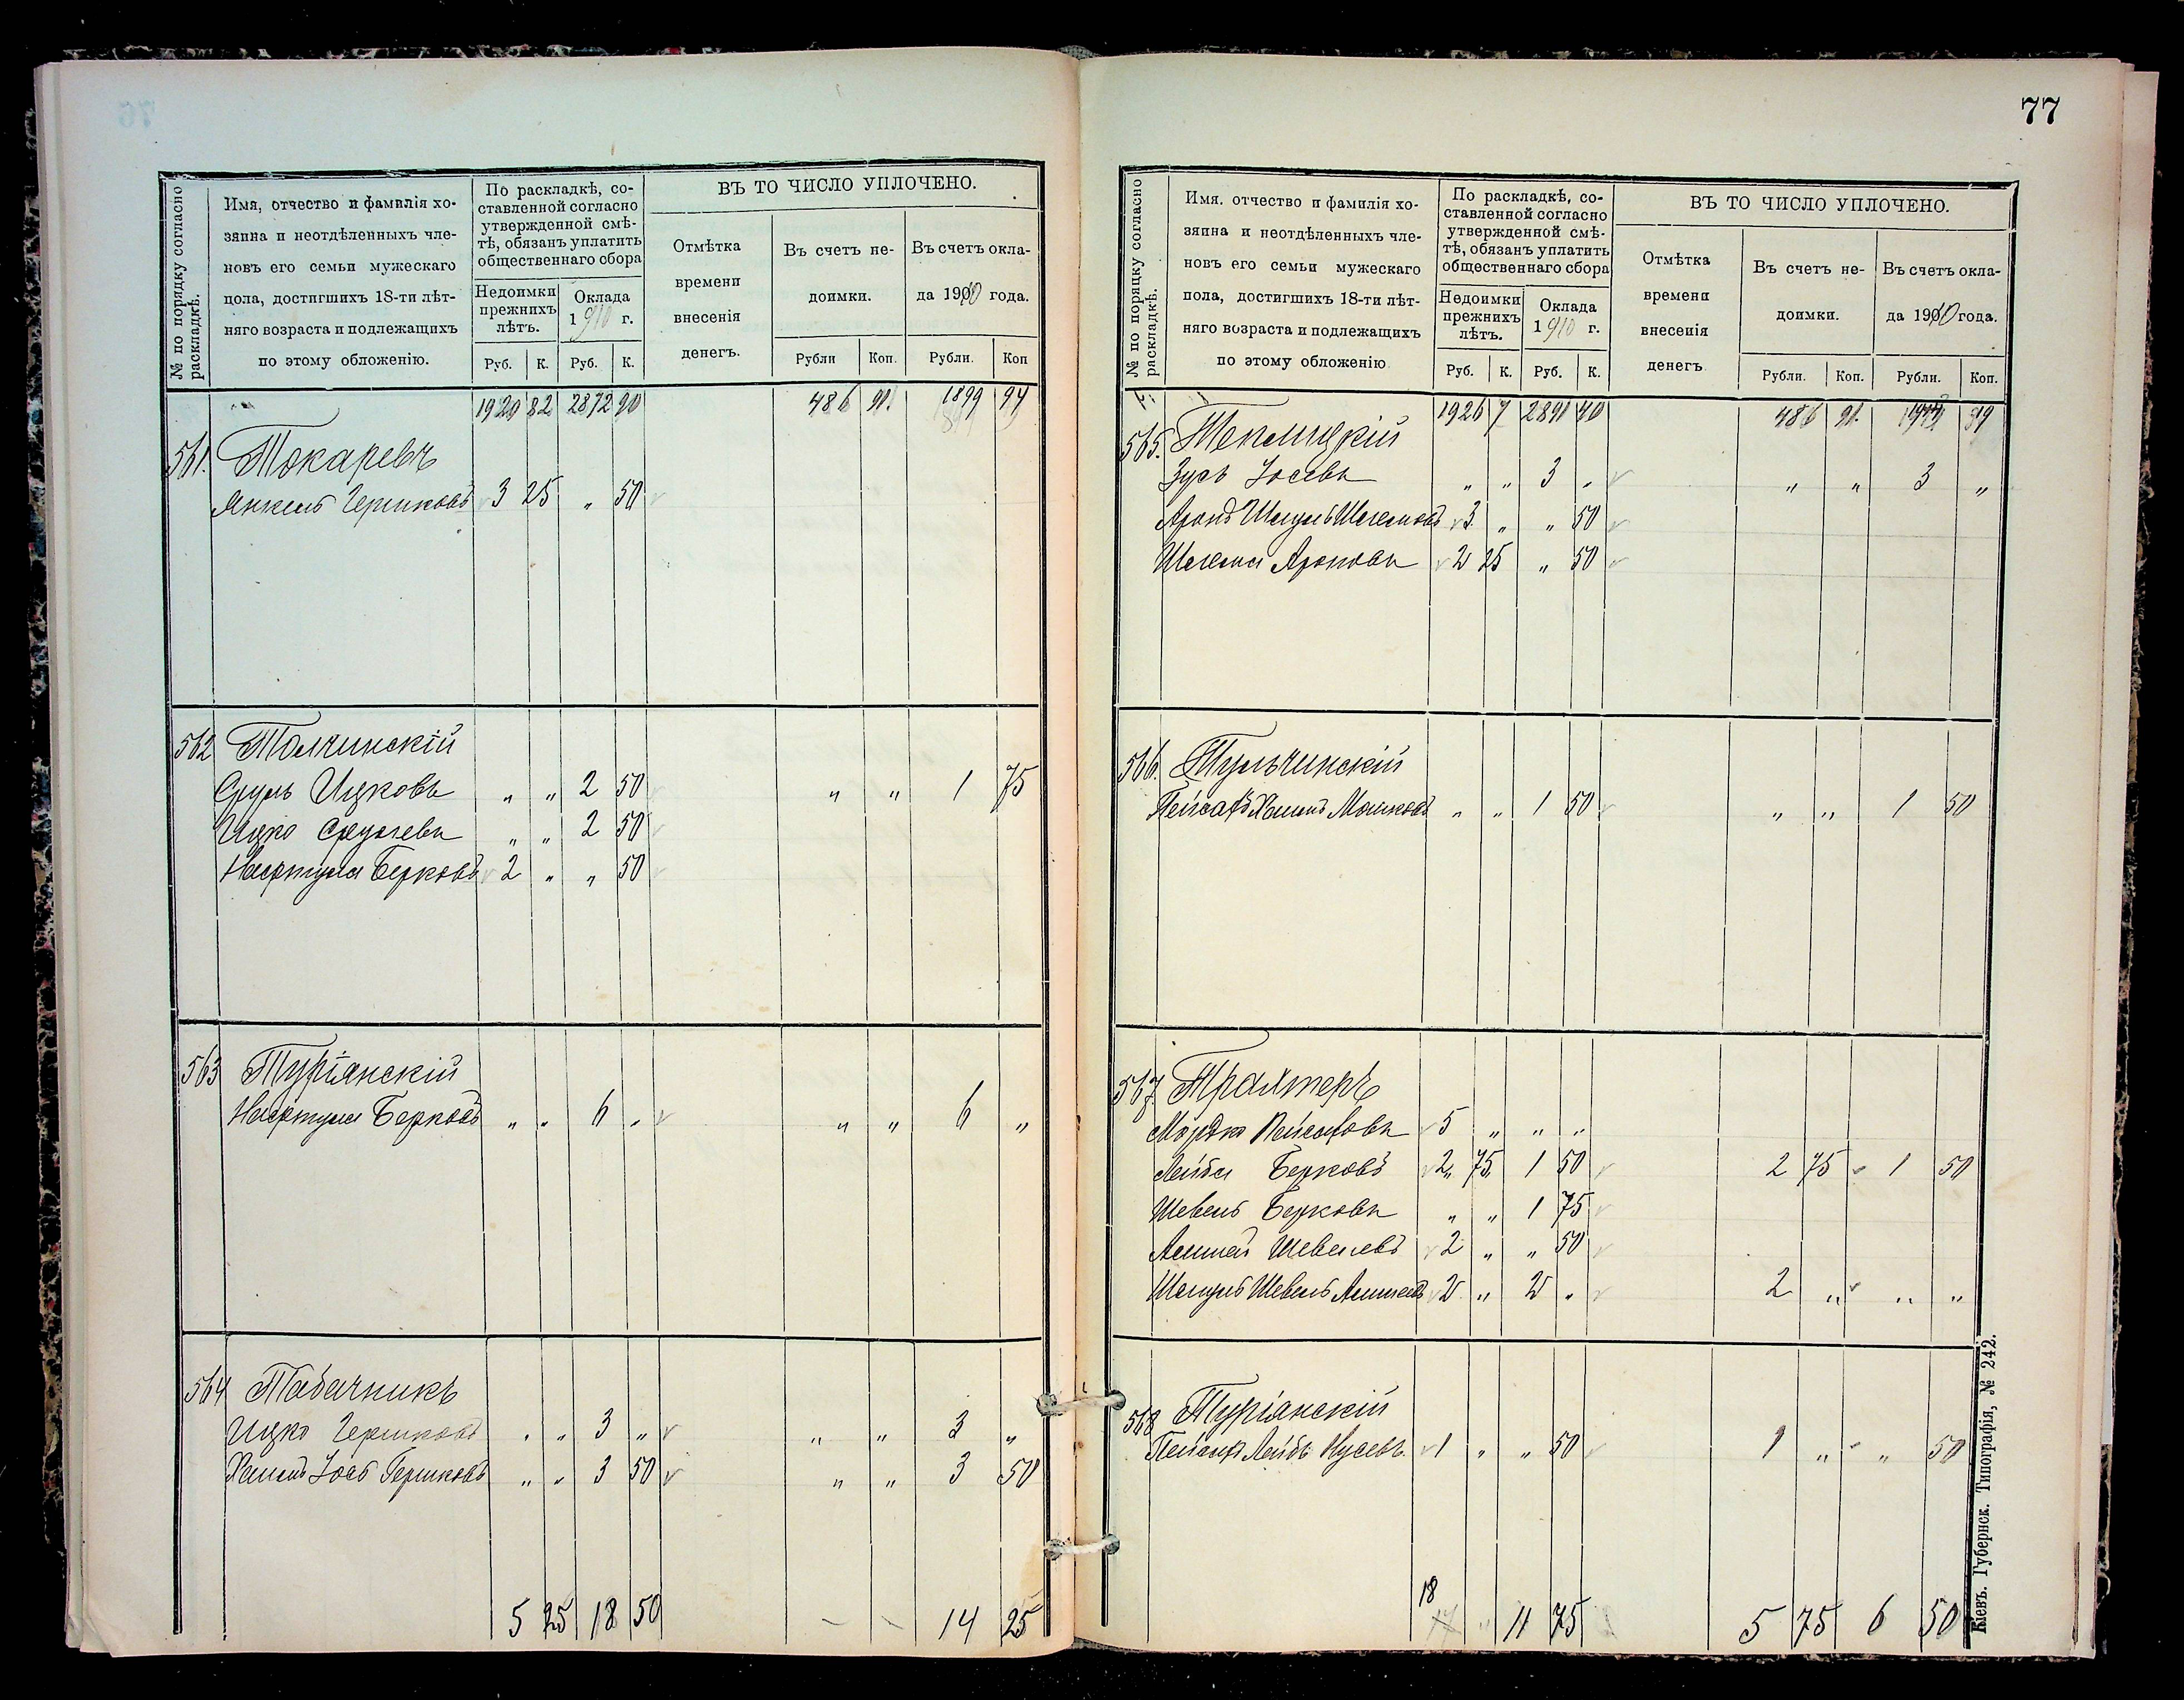 77
№ по порядку согласно раскладкѣ.
Имя, отчество и фамилія хо-
зяина и неотдѣленныхъ чле-
новъ его семьи мужескаго
пола, достигшихъ 18-ти лѣт-
няго возраста и подлежащихъ
по этому обложенію.
По раскладкѣ, со-
ставленной согласно
утвержденной смѣ-
тѣ, обязанъ уплатить
общественнаго сбора
Недоимки
прежнихъ
лѣтъ.
Оклада
1910 г.
ВЪ ТО ЧИСЛО УПЛОЧЕНО.
Отмѣтка
времени
внесенія
денегъ.
Въ счетъ не-
доимки.
Въ счетъ окла-
да 1910 года.
Руб. К. Руб. К. Рубли Коп. Рубли. Коп
1920 82 2872 90 486 91. 1899 94
561. Токаревъ
Янкель Гершковъ 3 25 „ 50
562 Толчинскій
Сруль Ицковъ „ „ 2 50 „ „ 1 75
Ицко Срулевъ „ „ 2 50
Нафтула Берковъ 2 „ „ 50
563 Туріянскій
Нафтула Берковъ „ „ 6 „ „ „ 6 „
564 Табачникъ
Ицко Гершковъ „ „ 3 „ „ „ 3 „
Хаимъ Іосъ Гершковъ „ „ 3 50 „ „ 3 50
5 25 18 50 - - 14 25
№ по порядку согласно раскладкѣ.
Имя, отчество и фамилія хо-
зяина и неотдѣленныхъ чле-
новъ его семьи мужескаго
пола, достигшихъ 18-ти лѣт-
няго возраста и подлежащихъ
по этому обложенію
По раскладкѣ, со-
ставленной согласно
утвержденной смѣ-
тѣ, обязанъ уплатить
общественнаго сбора
Недоимки
прежнихъ
лѣтъ.
Оклада
1910 г.
ВЪ ТО ЧИСЛО УПЛОЧЕНО.
Отмѣтка
времени
внесенія
денегъ
Въ счетъ не-
доимки.
Въ счетъ окла-
да 1910 года.
Руб. К. Руб. К. Рубли. Коп. Рубли. Коп.
1926 7 2891 40 486 91. 1914 19
565. Теплицкій
Зусь Іосевъ „ „ 3 „ „ „ 3 „
Аронъ Шмуль Шлемовъ 3 „ „ 50
Шлема Ароновъ 2 25 „ 50
566. Тульчинскій
Пейсахъ Хаимъ Мошковъ „ „ 1 50 „ „ 1 50
567 Трахтеръ
Мордко Пейсаховъ 5 „ „ „
Лейба Берковъ 2 75 1 50 2 75 1 50
Шевель Берковъ „ „ 1 75
Шевелевъ 2 „ „ 50
Шмуль Шевель 2 „ 2 „ 2 „ „ „
568 Туріанскій
Пейсахъ Лейбъ Нусевъ 1 „ „ 50 1 „ „ 50
18
17 „ 11 75 5 75 6 50
Кіевъ. Губернск. Типографія, № 242.